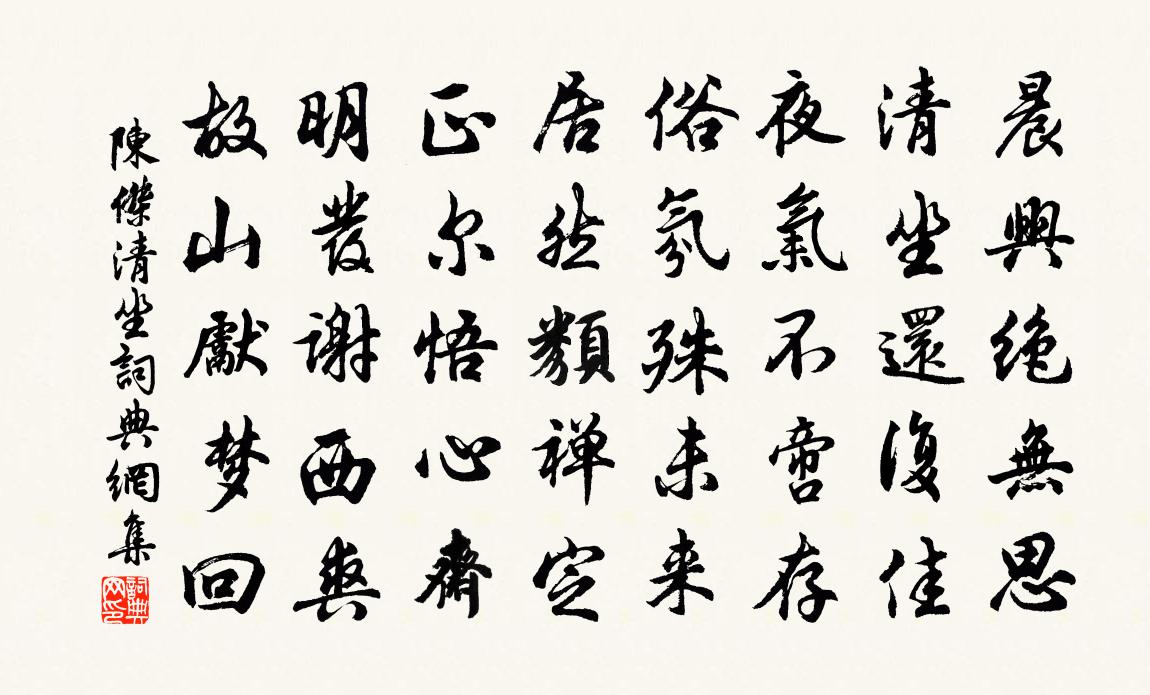 晨興绝無思
清坐還復佳
夜氣不啻存
俗氛殊未来
居然類禅定
正尔悟心齋
明發谢西爽
故山獻梦回
陳傑清坐詞典網集
詞典
网印